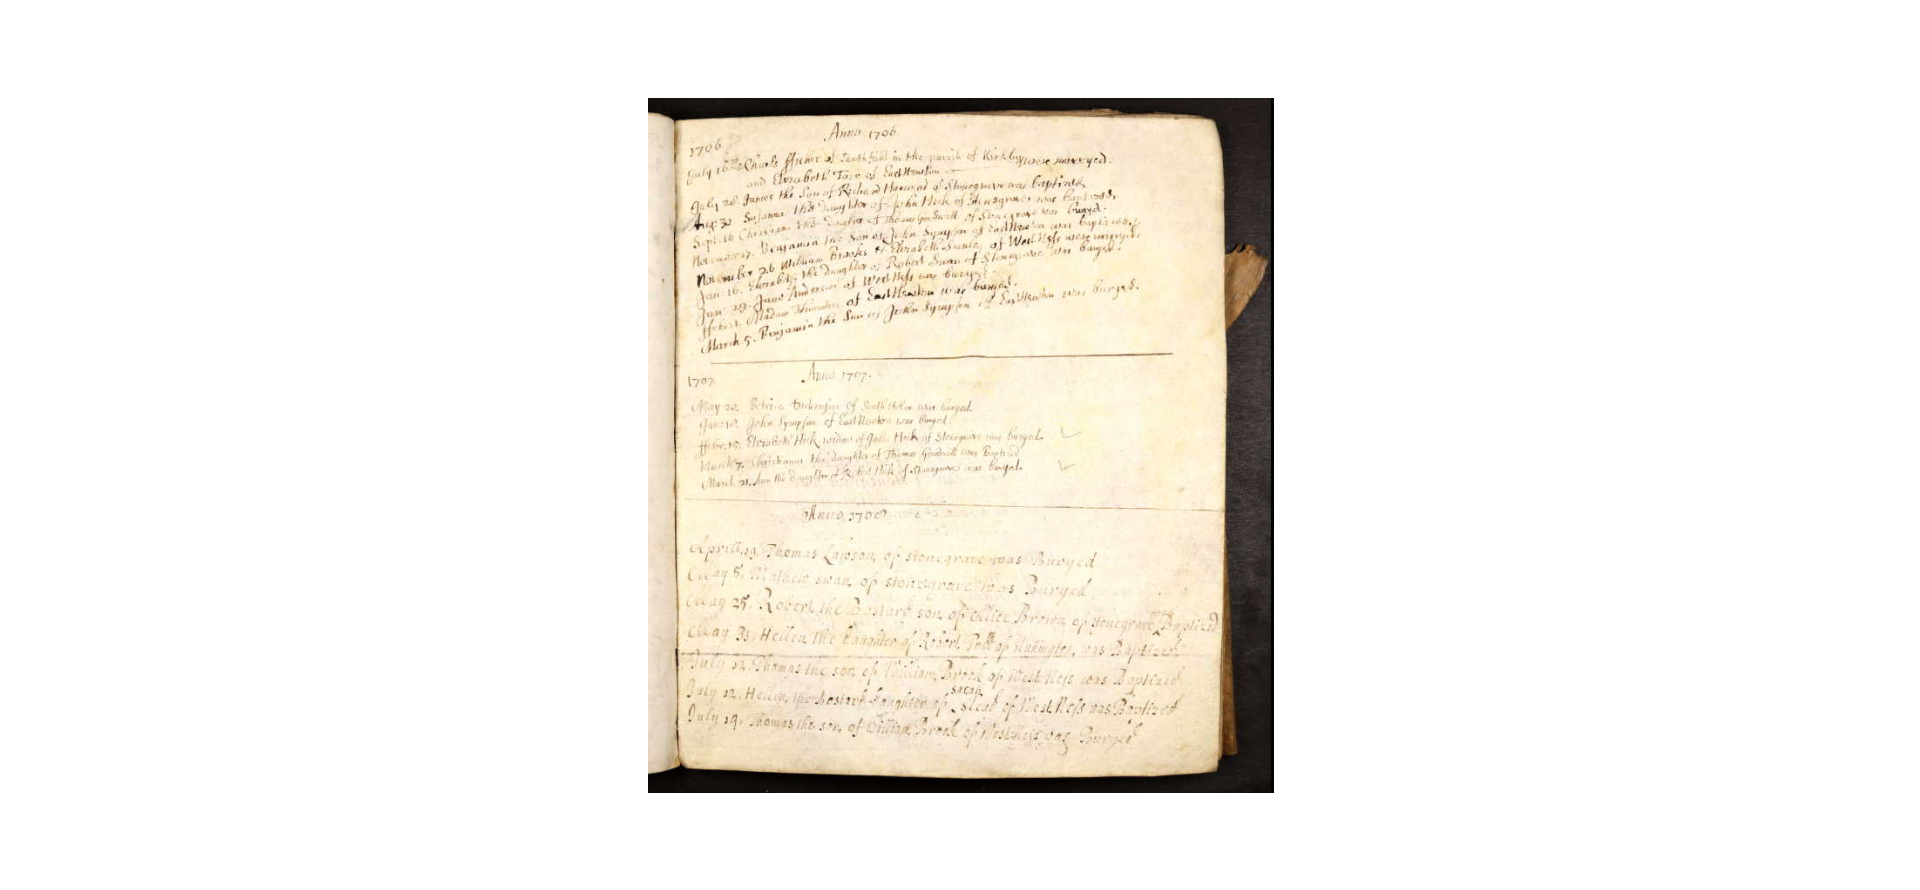 Anno. 1706.
1706.
July 16 Charles ffisher of in the parish of Kirkby were marryed.
and Elizabeth of East Newton
July 28. James the Son of Richard of Stonegrave was baptized
Aug: 30 Susanna the Daughter of John Hick of Stonegrave was baptized,
Sept: 16 Christiana the Daughter of Thomas of Stonegrave was buryed.
November 17. Benjamin the Son of John Sympson of East Newton was baptized.
November 26 William Brooks & Elizabeth of West Ness were marryed.
Jan: 16. Elizabeth the daughter of Robert Swan of Stonegrave was buryed.
Jan: 29. Jane Andrew of West Ness was buryed.
ffeb: Madam of East Newton was buryed.
March 5. Benjamin the Son of John Sympson of East Newton was buryed.
1707. Anno. 1707.
May 20. of South Holm was buryed.
June John Sympson of East Newton was buryed.
ffebr. 15. Elizabeth Hick widow of John Hick of Stonegrave was buryed.
March 7. Christianna the daughter of Thomas Goodwill was Baptized
March 21. Ann the daughter of Robert Hick of Stonegrave was buryed.
Anno. 1708
Aprill. 19. Thomas Lawson, of stonegrave was Buryed
May. 5. Mathew swan, of stonegrave was Buryed
May 25. Robert, the Bastard son, of Allice Brown, of stonegrave was Baptized
May 31. Hellen, the daughter of Robert of was Baptized
July 12. Thomas the son of William Brook of West Ness was Baptized
sarah
July 12. Hellen, the bastard daughter of slead of West Ness was Baptized
July 14. Thomas the son of William Brook of West Ness was Buryed